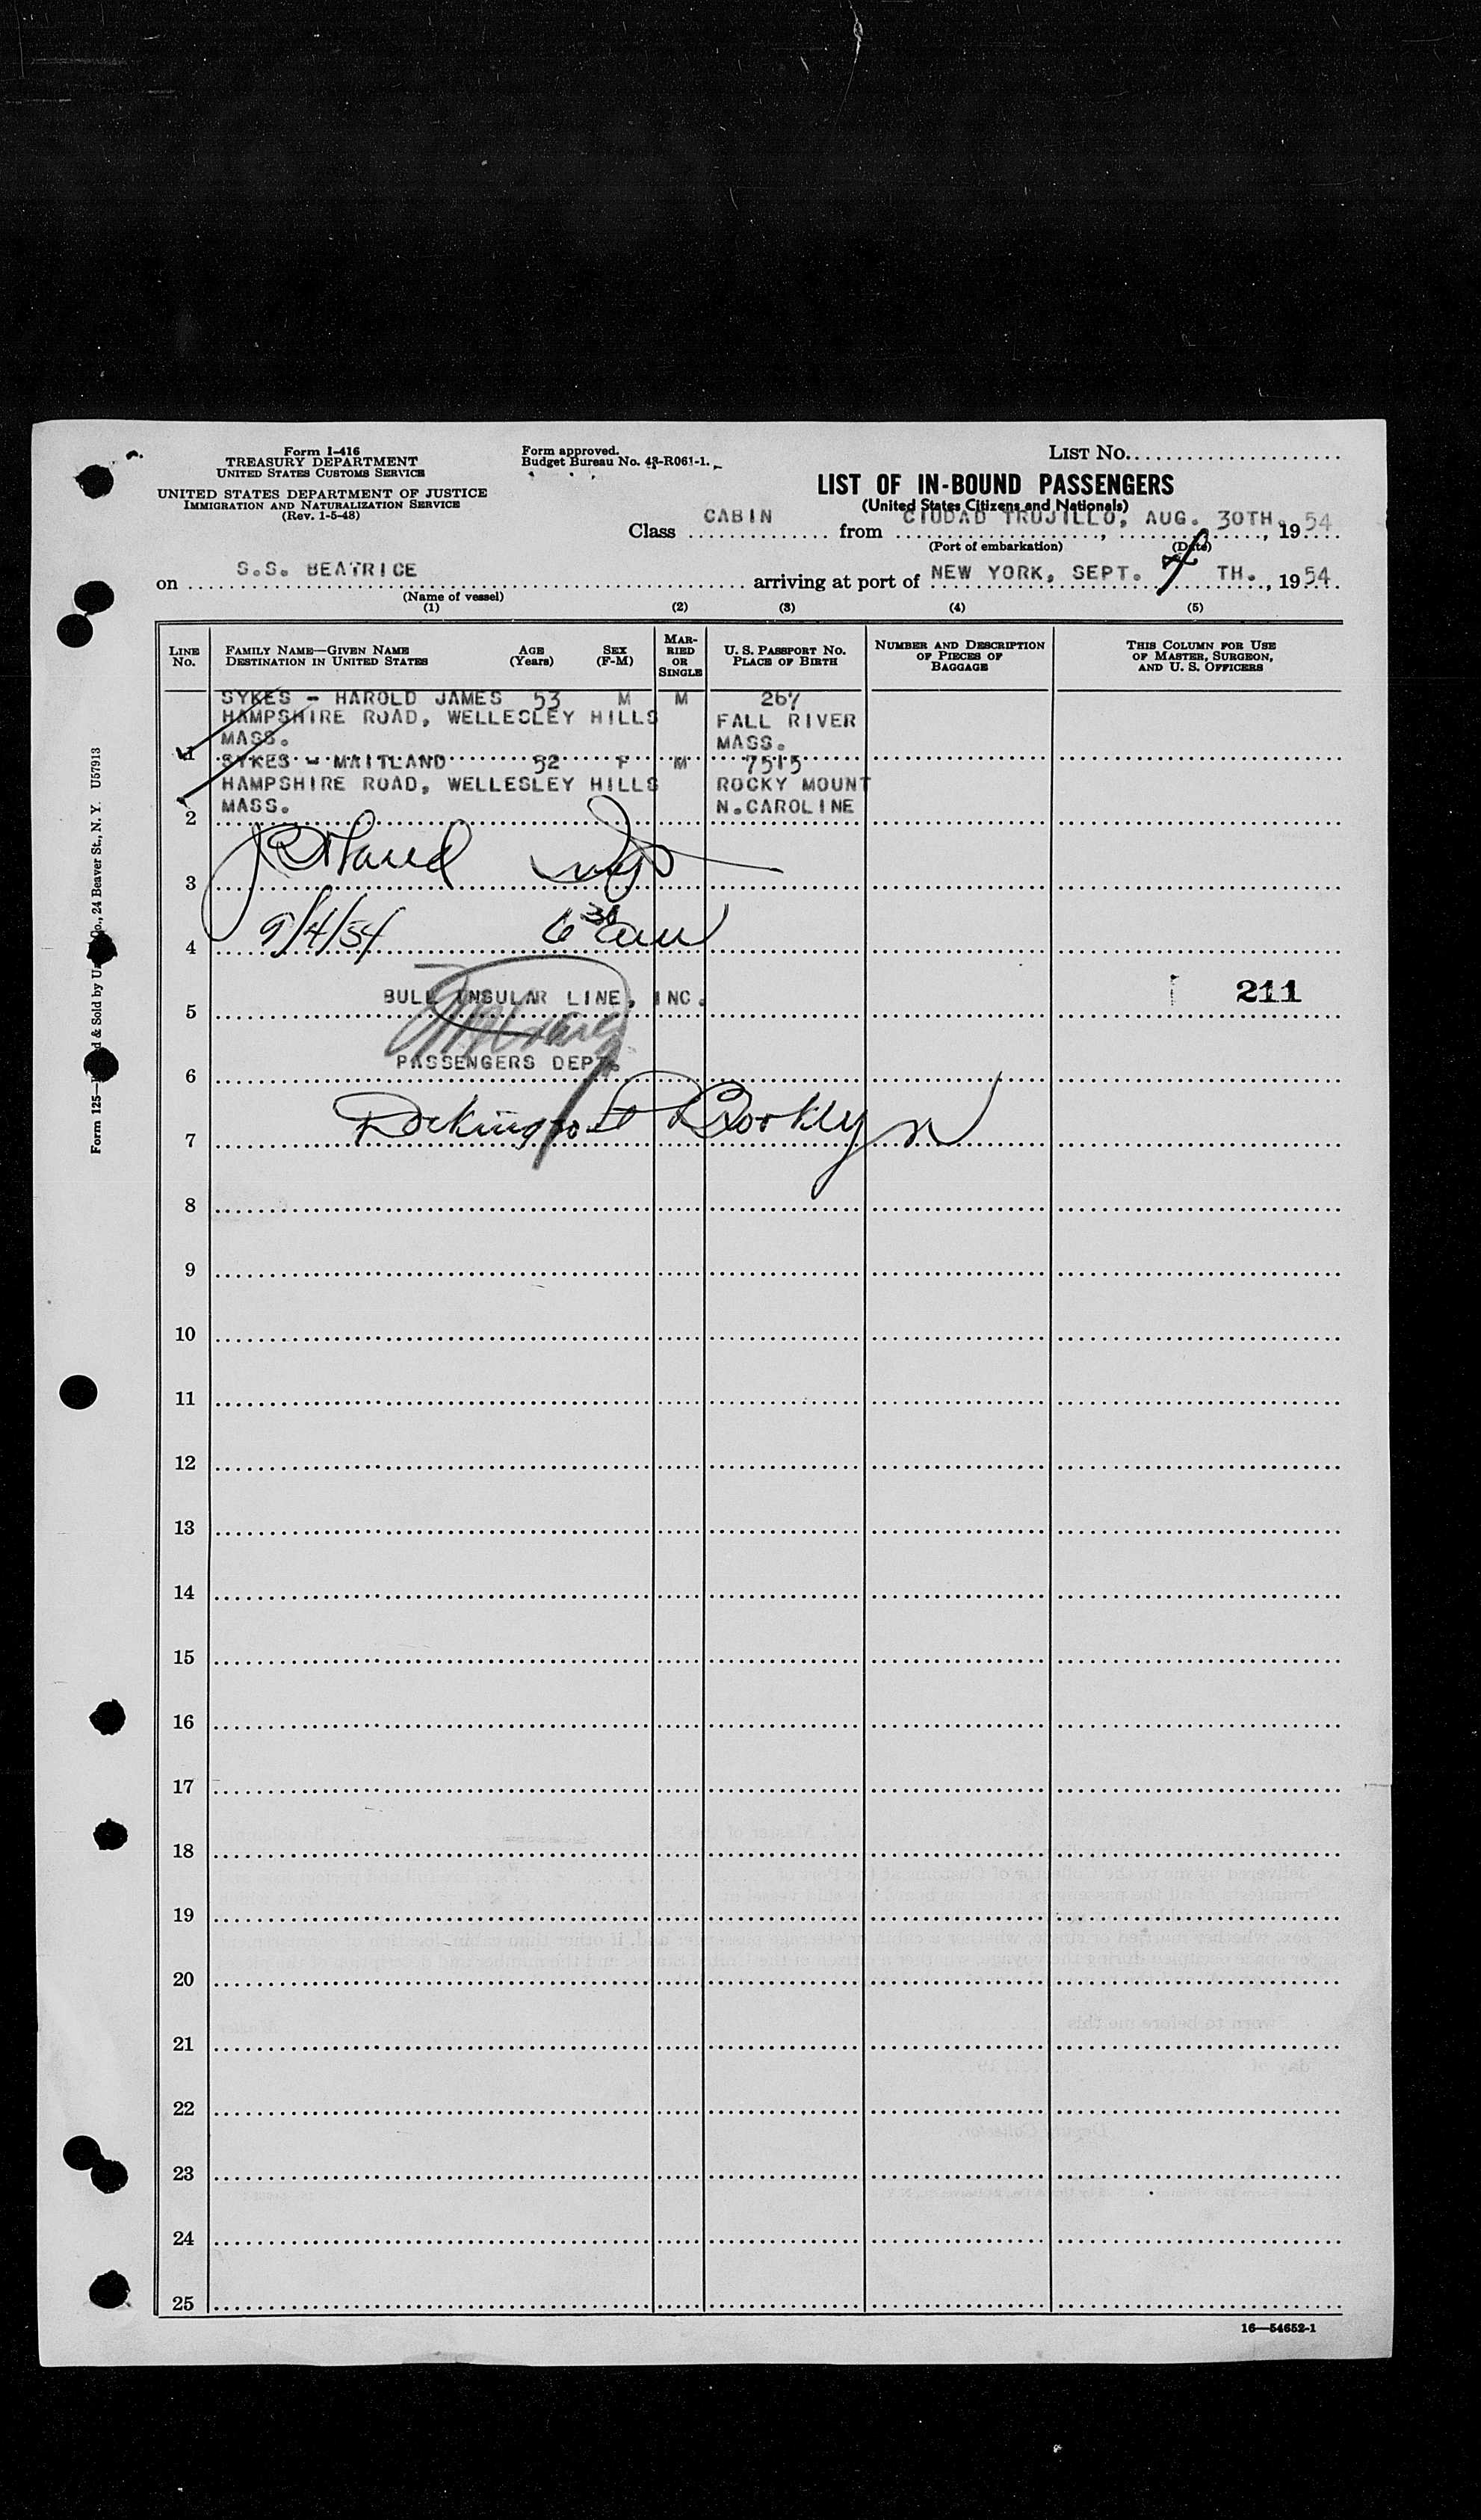 Form I-416
TREASURY DEPARTMENT
UNITED STATES CUSTOMS SERVICE
UNITED STATES DEPARTMENT OF JUSTICE
IMMIGRATION AND NATURALIZATION SERVICE
(Rev. 1-5-48)
Form approved.
Budget Bureau No. 43-R061-1.
LIST No.
LIST OF IN-BOUND PASSENGERS
(United States Citizens and Nationals)
Class CABIN from CIUDAD TRUJILLO, AUG. 30TH, 1954
(Port of embarkation) (Date)
on S.S. BEATRICE arriving at port of NEW YORK, SEPT. 4 TH., 1954
(Name of vessel)
(1) (2) (3) (4) (5)
LINE No. FAMILY NAME—GIVEN NAME DESTINATION IN UNITED STATES AGE (Years) SEX (F-M) MARRIED OR SINGLE U. S. PASSPORT No. PLACE OF BIRTH NUMBER AND DESCRIPTION OF PIECES OF BAGGAGE THIS COLUMN FOR USE OF MASTER, SURGEON, AND U. S. OFFICERS
SYKES - HAROLD JAMES 53 M M 267
HAMPSHIRE ROAD, WELLECLEY HILLS FALL RIVER
1 MASS. MASS.
SYKES - MAITLAND 52 F M 7515
HAMPSHIRE ROAD, WELLESLEY HILLS ROCKY MOUNT
2 MASS. N.CAROLINE
3
4 9/4/54 6 30 am
5 BULL INSULAR LINE, INC. 211
6 PASSENGERS DEPT.
7 Brooklyn
8
9
10
11
12
13
14
15
16
17
18
19
20
21
22
23
24
25
16—54652-1
Form 125— & Sold by Co., 24 Beaver St., N. Y. U57913